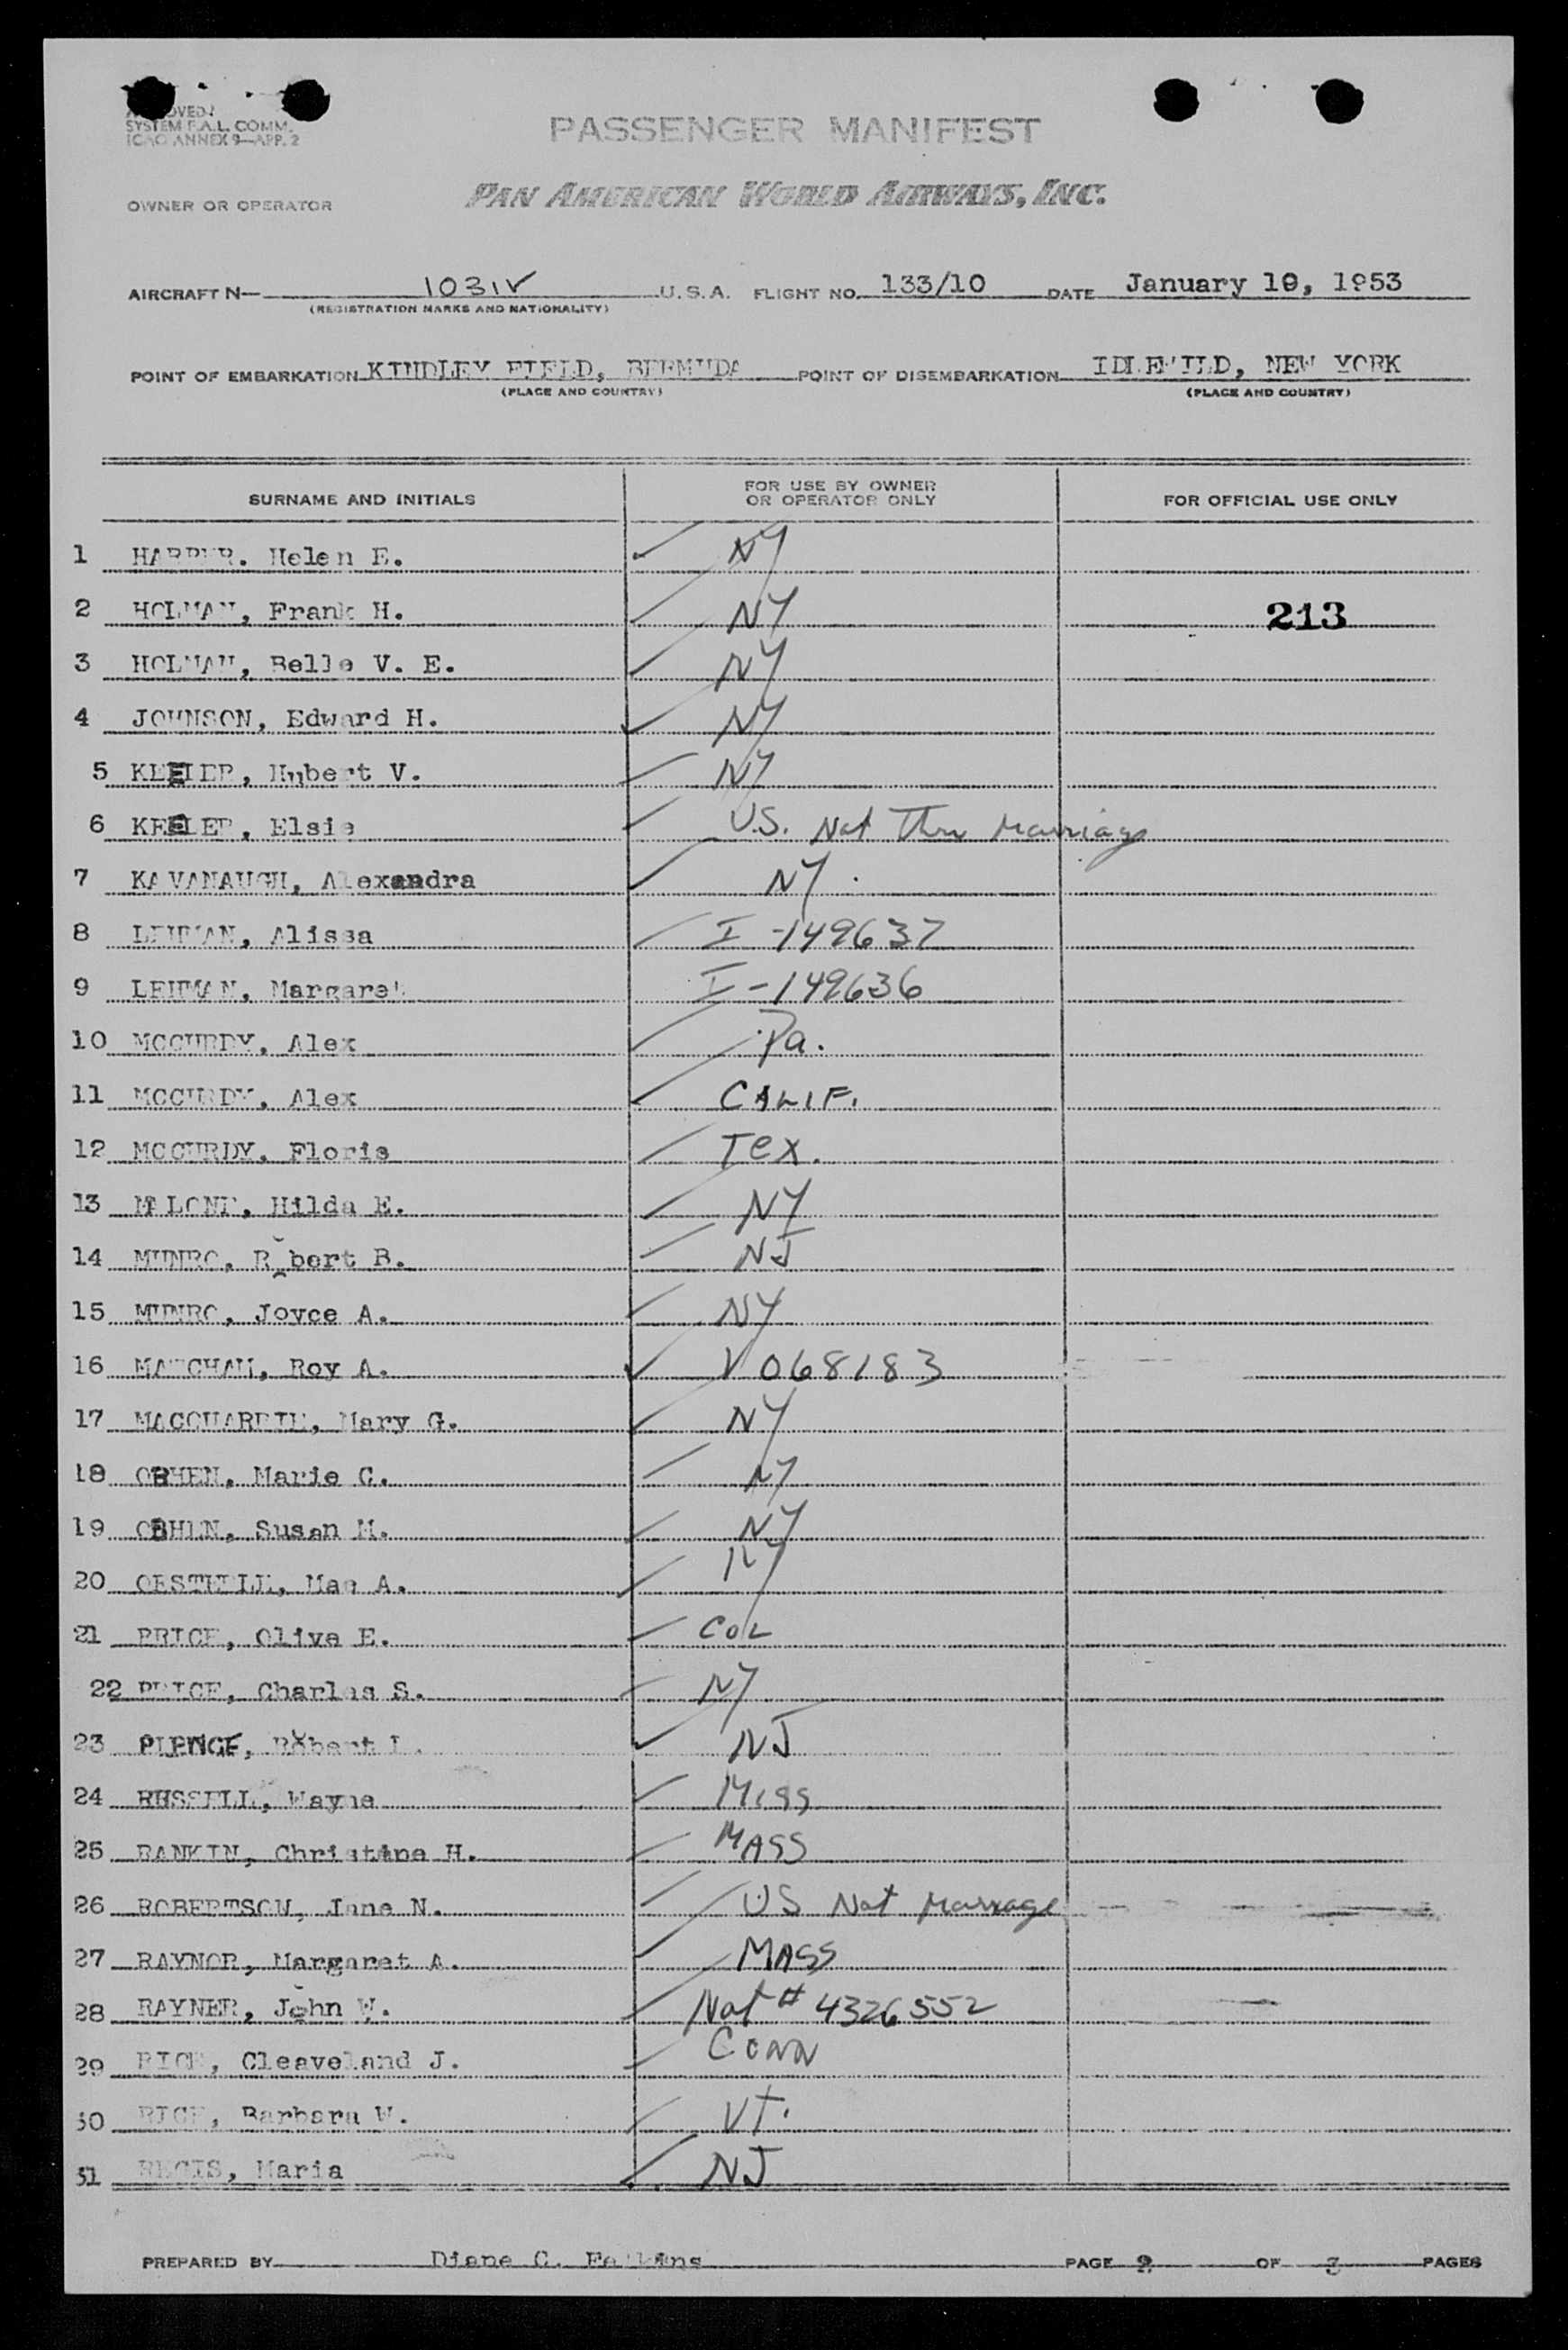 SYSTEM F.A.L. COMM.
ICAO ANNEX 9—APP. 2
PASSENGER MANIFEST
OWNER OR OPERATOR PAN AMERICAN WORLD AIRWAYS, INC.
AIRCRAFT N— 1031V U.S.A. FLIGHT NO. 133/10 DATE January 10, 1953
(REGISTRATION MARKS AND NATIONALITY)
POINT OF EMBARKATION KINDLEY FIELD, BERMUDA POINT OF DISEMBARKATION IDLEWILD, NEW YORK
(PLACE AND COUNTRY) (PLACE AND COUNTRY)
SURNAME AND INITIALS FOR USE BY OWNER OR OPERATOR ONLY FOR OFFICIAL USE ONLY
1 HARPER. Helen E. NY
2 HOLMAN, Frank H. NY 213
3 HOLMAN, Belle V. E. NY
4 JOHNSON, Edward H. NY
5 KEELER, Hubert V. NY
6 KEELER, Elsie U.S. Nat Thru Marriage
7 KAVANAUGH, Alexandra NY.
8 LEHMAN, Alissa I-149637
9 LEHMAN, Margaret I-149636
10 MCCURDY, Alex Pa.
11 MCCURDY, Alex CALIF.
12 MCCURDY, Floris Tex.
13 MALONE, Hilda E. NY
14 MUNRO, Robert B. NJ
15 MUNRO, Joyce A. NY
16 MATCHAM, Roy A. V068183
17 Mary G. NY
18 Marie C. NY
19 Susan M. NY
20 Mae A. NY
21 PRICE, Olive E. COL
22 PRICE, Charles S. NY
23 Robert L. NJ
24 RUSSELL, Wayne Miss
25 RANKIN, Christine H. MASS
26 ROBERTSON, Jane N. US Nat Marriage
27 RAYNOR, Margaret A. MASS
28 RAYNER, John W. Nat # 4326552
29 RICE, Cleaveland J. Conn
30 RICE, Barbara W. Vt.
31 REGIS, Maria NJ
PREPARED BY Diane C. PAGE 2 OF 3 PAGES